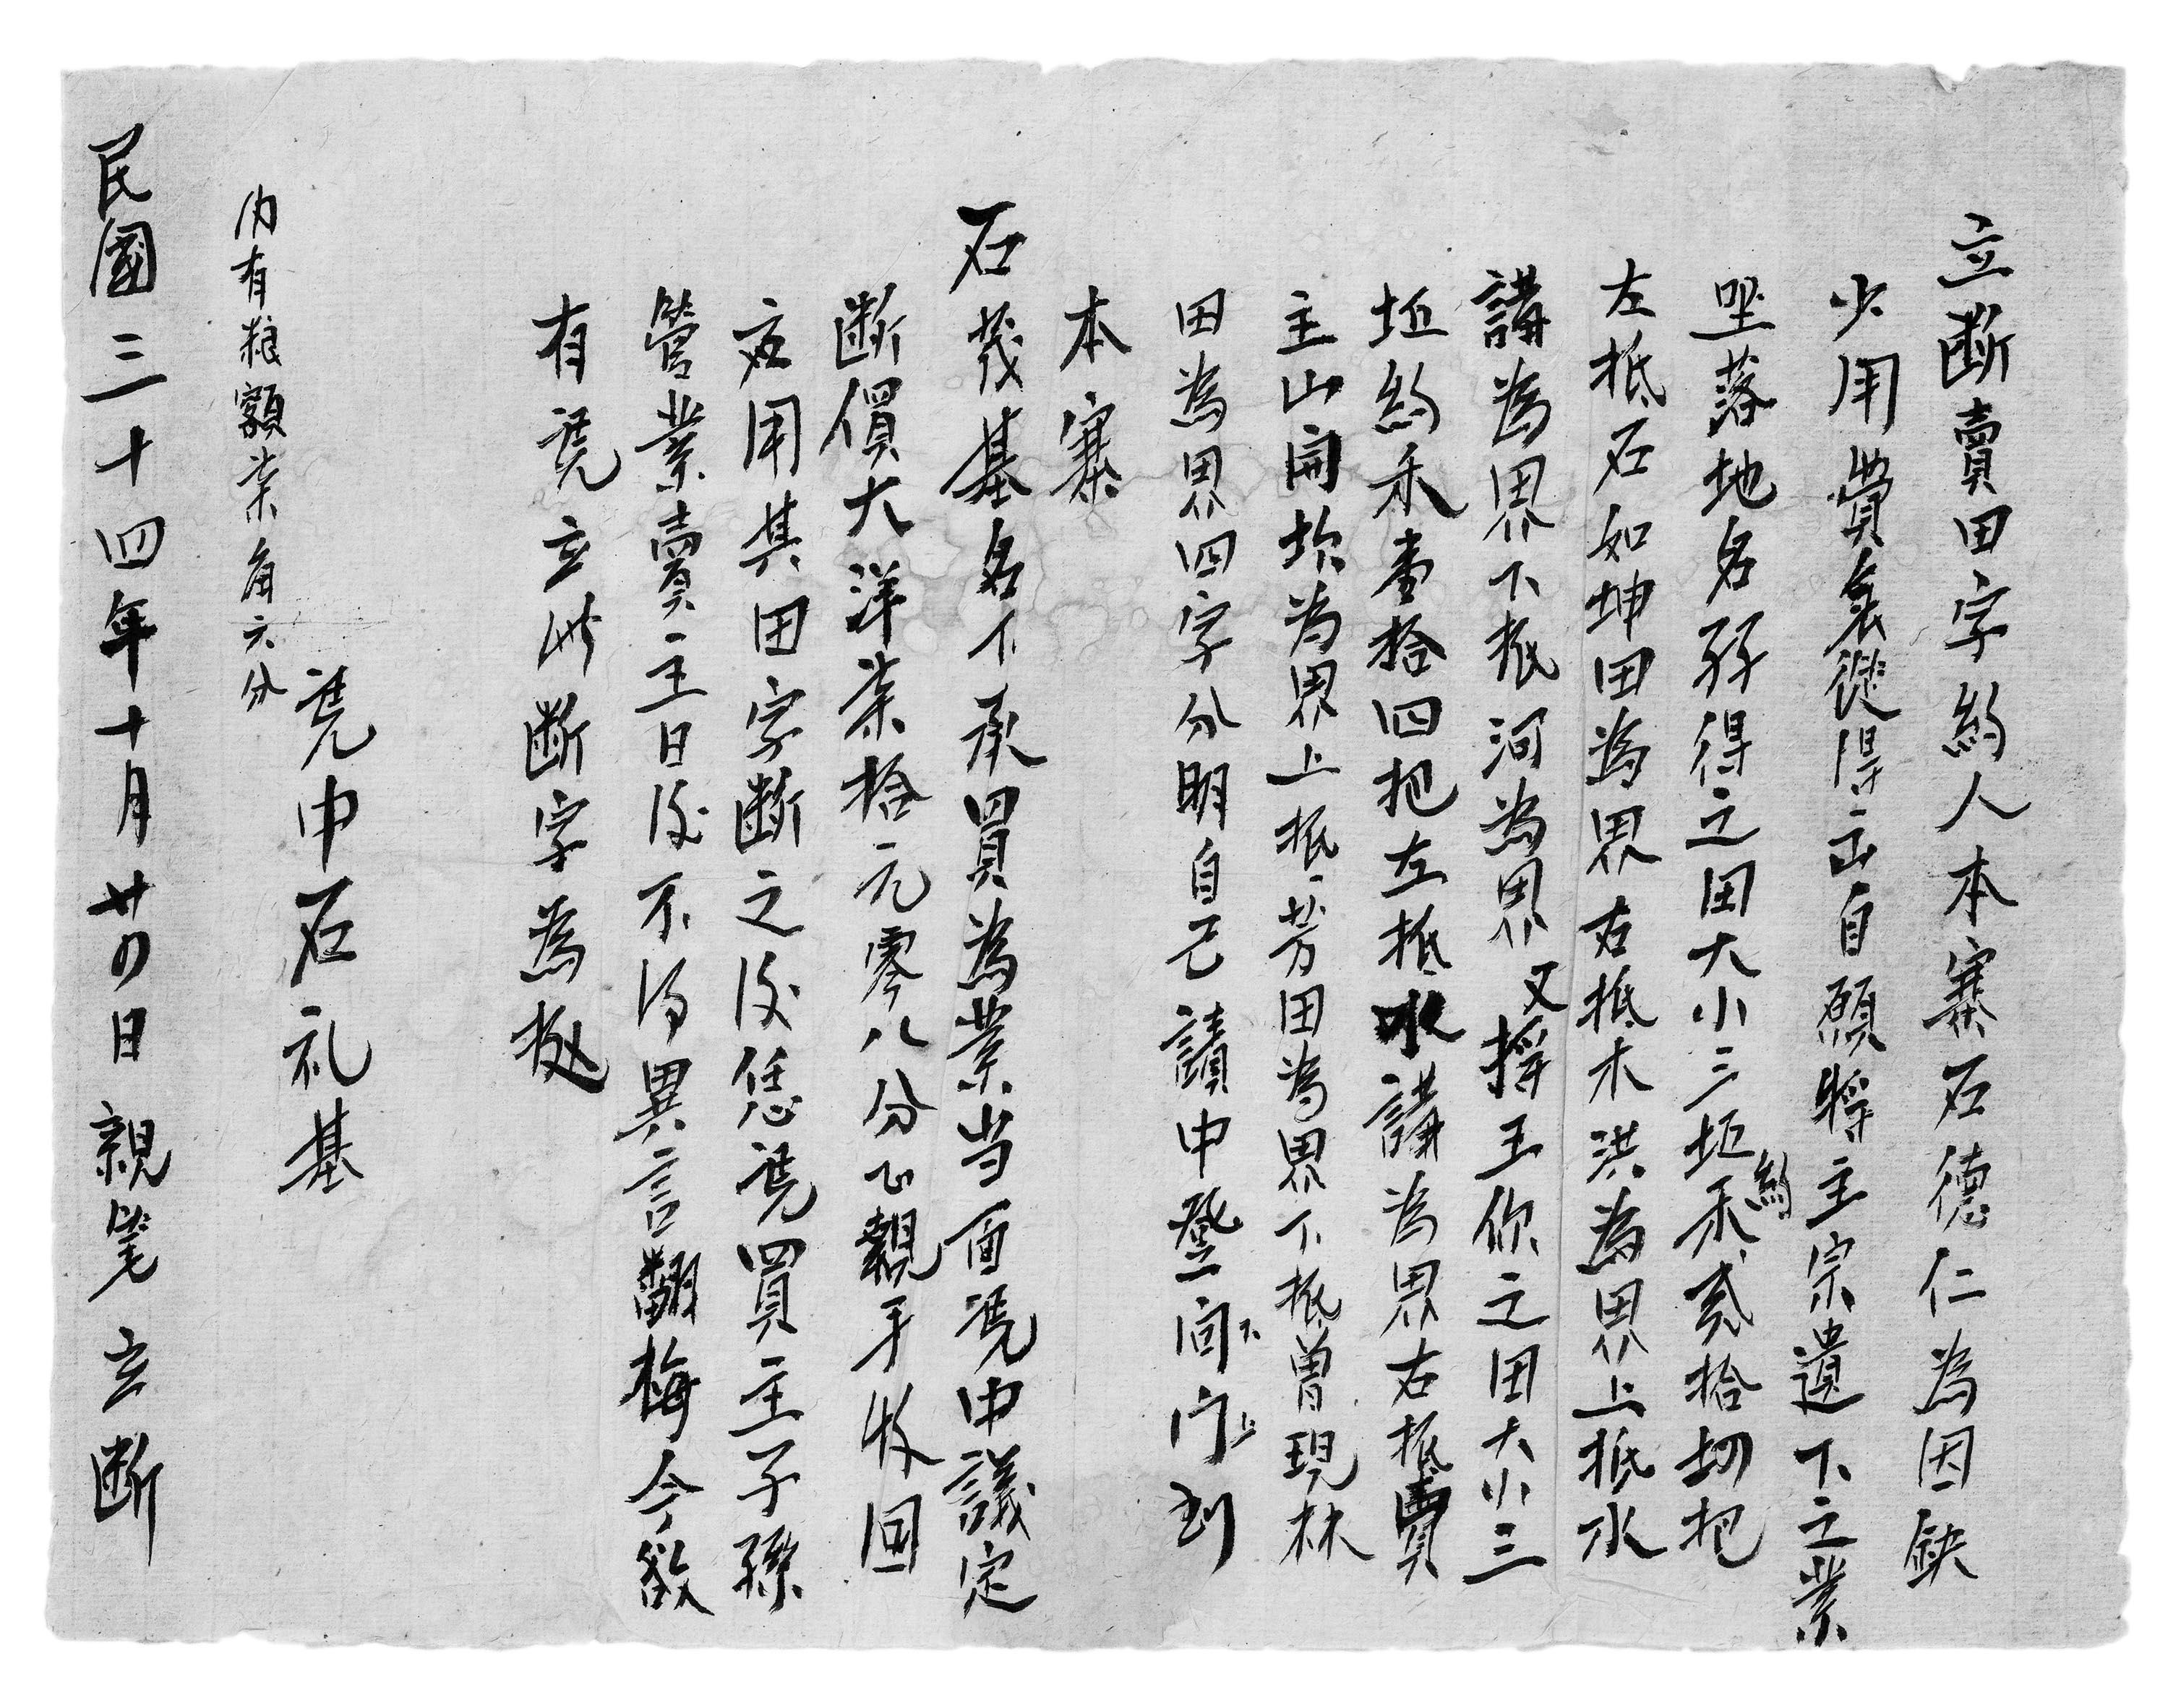 立断賣田字約人本寨石德仁為因缺
少用費無從得出自願將主宗遺下之業
坐落地名孖得之田大小三坵約禾貳拾切把
左抵石如坤田為界右抵木洪為界上抵水
講為界下抵河為界又将王你之田大小三
坵約禾壹拾四把左抵水講為界右抵賣
主山開坎為界上抵芳田為界下抵曾現林
田為界四字分明自己請中登問下门上到
本寨
石茂基名下承買為業当面凴中議定
断價大洋柒拾元零八分正親手收回
應用其田字断之後恁凴買主子孫
管業賣主日後不得異言翻悔今欲
有凴立此断字為據
凴中石礼基
内有粮額柒角六分
民國三十四年十月廿四日親筆立断